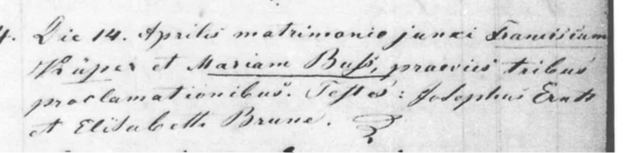 4. Die 14. Aprilis matrimonio junxi Franciscum
Küper et Mariam Buß, praeviis tribus
proclamationibus. Testes: Josephus Ernst
et Elisabeth Brune.